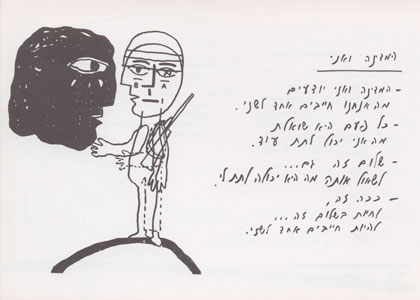 המדינה ואני
- המדינה ואני יודעים
מה אנחנו חייבים אחד לשני.
- כל פעם היא שואלת
מה אני יכול לתת עוד.
- שלום זה גם...
לשאול אותה מה היא יכולה לתת לי.
- ככה זה,
לחיות בשלום זה...
להיות חייבים אחד לשני.
B A